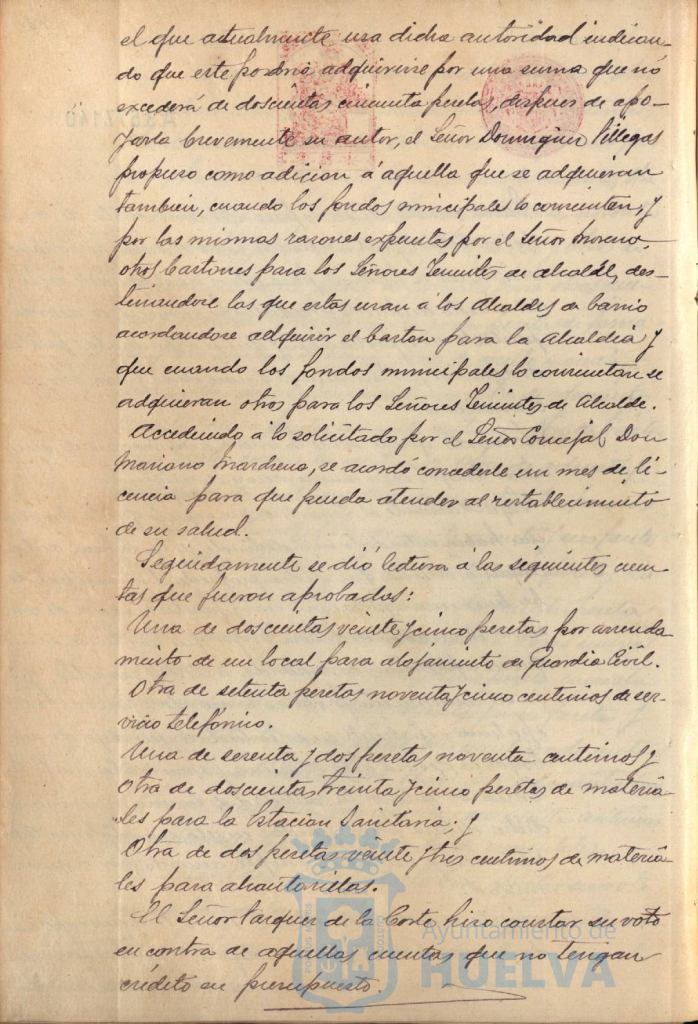 el que actualmente usa dicha autoridad indican-
do que este podria adquirirse por una suma que no
excederá de doscientas cincuenta pesetas, despues de apo-
yarla brevemente su autor, el Señor Dominguez Villegas
propuso como adicion á aquella que se adquieran
tambien, cuando los fondos municipales lo consienten, y
por las mismas razones expuestas por el Señor Moreno,
otros bastones para los Señores Tenientes de alcalde, des-
tinandose las que estos usan á los Alcaldes de barrio
acordandose adquirir el baston para la Alcaldia y
que cuando los fondos municipales lo consientan se
adquieran otros para los Señores Tenientes de Alcalde.
Accediendo á lo solicitado por el Señor Concejal Don
Mariano Marchena, se acordó concederle un mes de li-
cencia para que pueda atender al restablecimiento
de su salud.
Seguidamente se dió lectura á las siguientes cuen-
tas que fueron aprobadas:
Una de doscientas veinte y cinco pesetas por arrenda
miento de un local para alojamiento de Guardia Civil.
Otra de setenta pesetas noventa y cinco centimos de ser-
vicio telefónico.
Una de sesenta y dos pesetas noventa centimos y
Otra de doscientas treinta y cinco pesetas de materia-
les para la Estacion Sanitaria; y
Otra de dos pesetas veinte y tres centimos de materia-
les para alcantarillas.
El Señor Vazquez de la Corte hizo constar su voto
en contra de aquellas cuentas que no tengan
crédito en presupuesto.
Ayuntamiento de
HUELVA